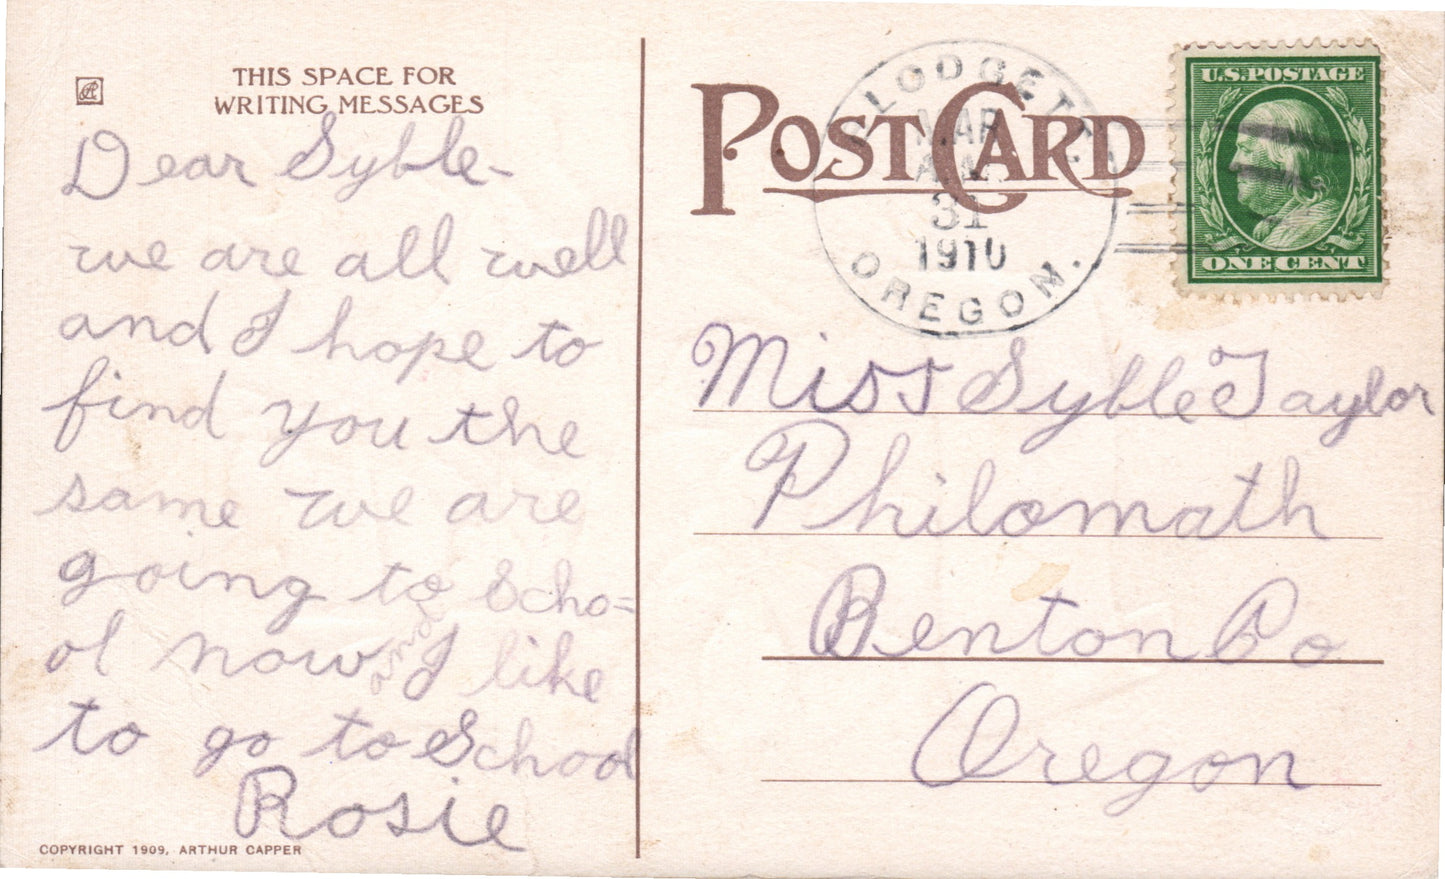 THIS SPACE FOR
WRITING MESSAGES
Dear Syble-
we are all well
and I hope to
find you the
same we are
going to Scho=
ol now, and I like
to go to School
Rosie
COPYRIGHT 1909, ARTHUR CAPPER
POST CARD
BLODGETT
MAR
31
1910
OREGON.
U.S. POSTAGE
ONE CENT
Miss Syble Taylor
Philomath
Benton Co
Oregon